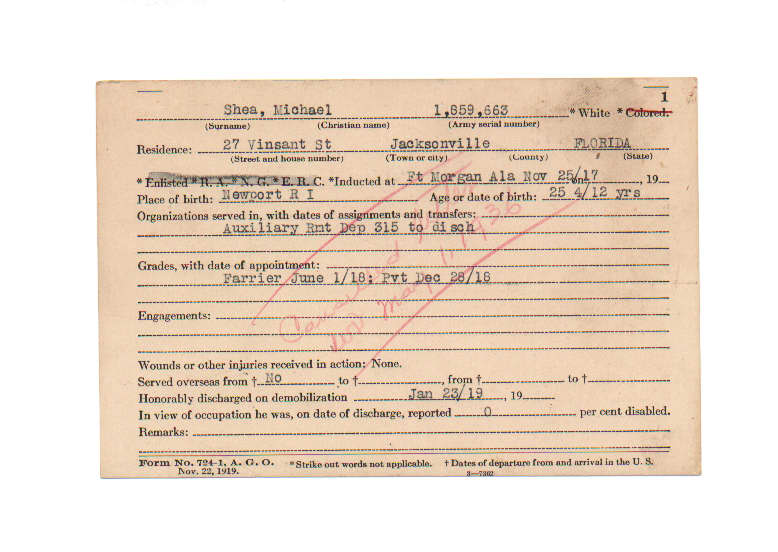 1
Shea, Michael 1,859,663 * White * Colored.
(Surname) (Christian name) (Army serial number)
Residence: 27 Vinsant St Jacksonville FLORIDA
(Street and house number) (Town or city) (County) (State)
* Enlisted * R. A. * N. G. * E. R. C. *Inducted at Ft Morgan Ala Nov 25/17 on , 19
Place of birth: Newport R I Age or date of birth: 25 4/12 yrs
Organizations served in, with dates of assignments and transfers:
Auxiliary Rmt Dep 315 to disch
Grades, with date of appointment:
Farrier June 1/18; Pvt Dec 28/18
Cancelled
Engagements:
Wounds or other injuries received in action: None.
Served overseas from † No to † , from † to †
Honorably discharged on demobilization Jan 23/19 , 19
In view of occupation he was, on date of discharge, reported 0 per cent disabled.
Remarks:
Form No. 724-1, A. G. O. *Strike out words not applicable. † Dates of departure from and arrival in the U. S.
Nov. 22, 1919. 3—7362